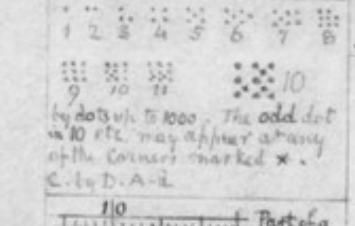 1 2 3 4 5 6 7 8
9 10 11 10
by dots up to 1000. The odd dot
in 10 etc. may appear at any
of the Corners marked x.
C. by D.A-E
1 0
Part of a